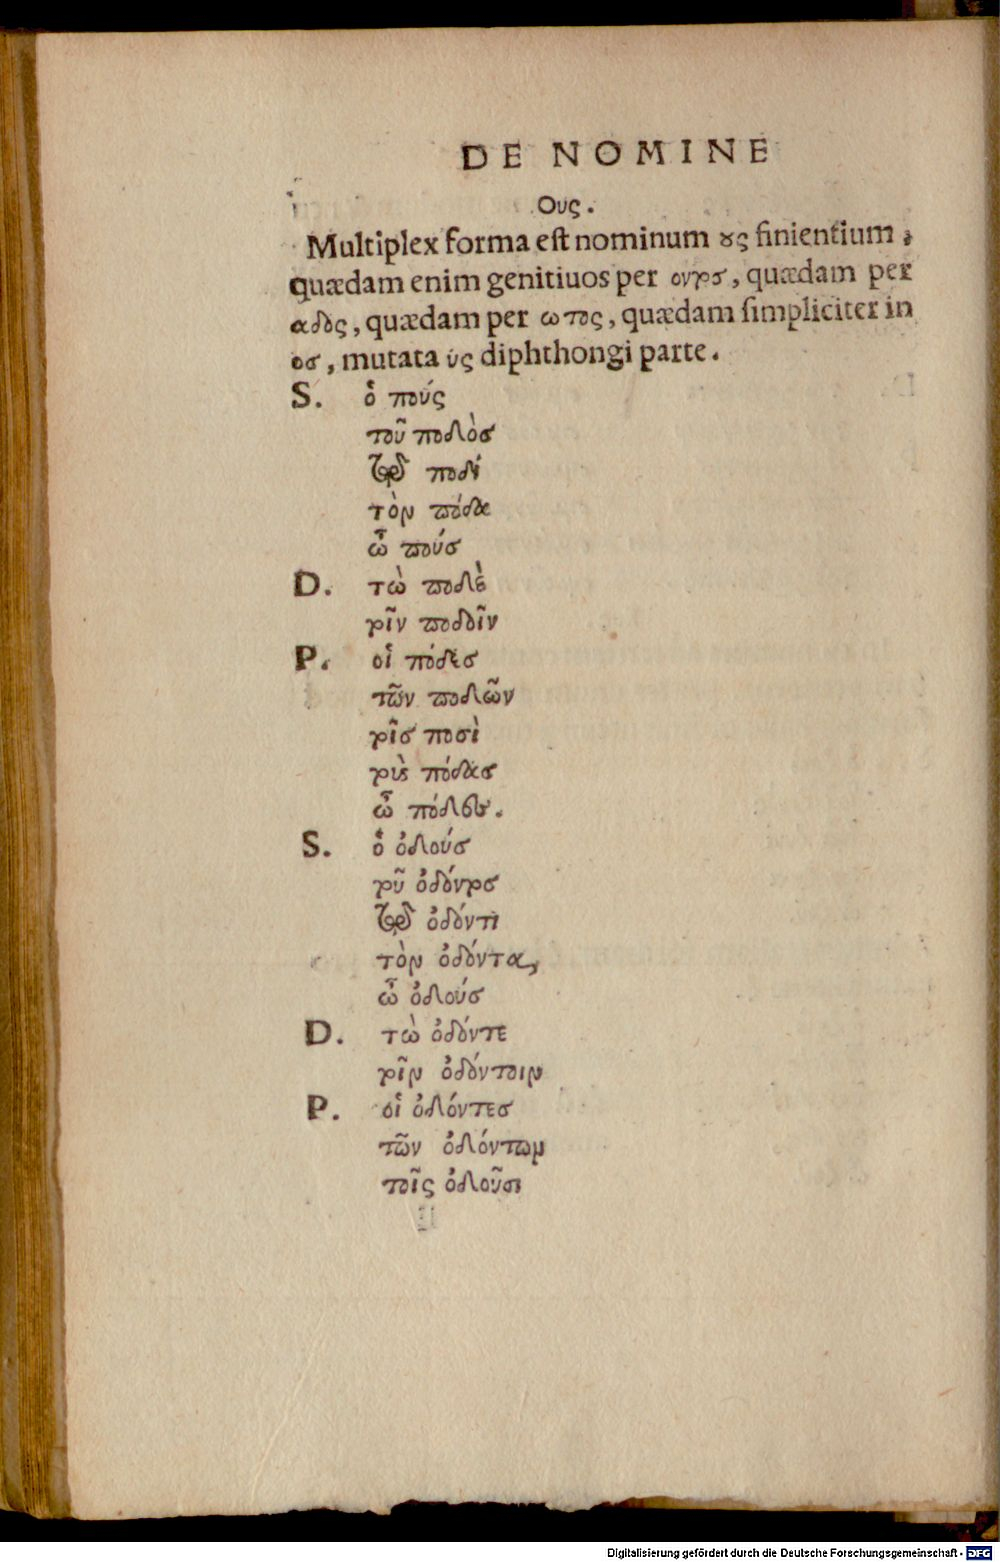 DE NOMINE
Ους.
Multiplex forma est nominum ους finientium,
quædam enim genitiuos per οντος, quædam per
οδος, quædam per ωτος, quædam simpliciter in
ος, mutata ὑς diphthongi parte.
S. ὁ πούς
τοῦ ποδὸς
τῷ ποδί
τὸν πόδα
ὦ πούς
D. τὼ ποδὲ
τοῖν ποδοῖν
P. οἱ πόδες
τῶν ποδῶν
τοῖς ποσὶ
τοὺς πόδας
ὦ πόδες.
S. ὁ ὀδούς
τοῦ ὀδόντος
τῷ ὀδόντι
τὸν ὀδόντα,
ὦ ὀδούς
D. τὼ ὀδόντε
τοῖν ὀδόντοιν
P. οἱ ὀδόντες
τῶν ὀδόντων
τοῖς ὀδοῦσι
Digitalisierung gefördert durch die Deutsche Forschungsgemeinschaft - DFG